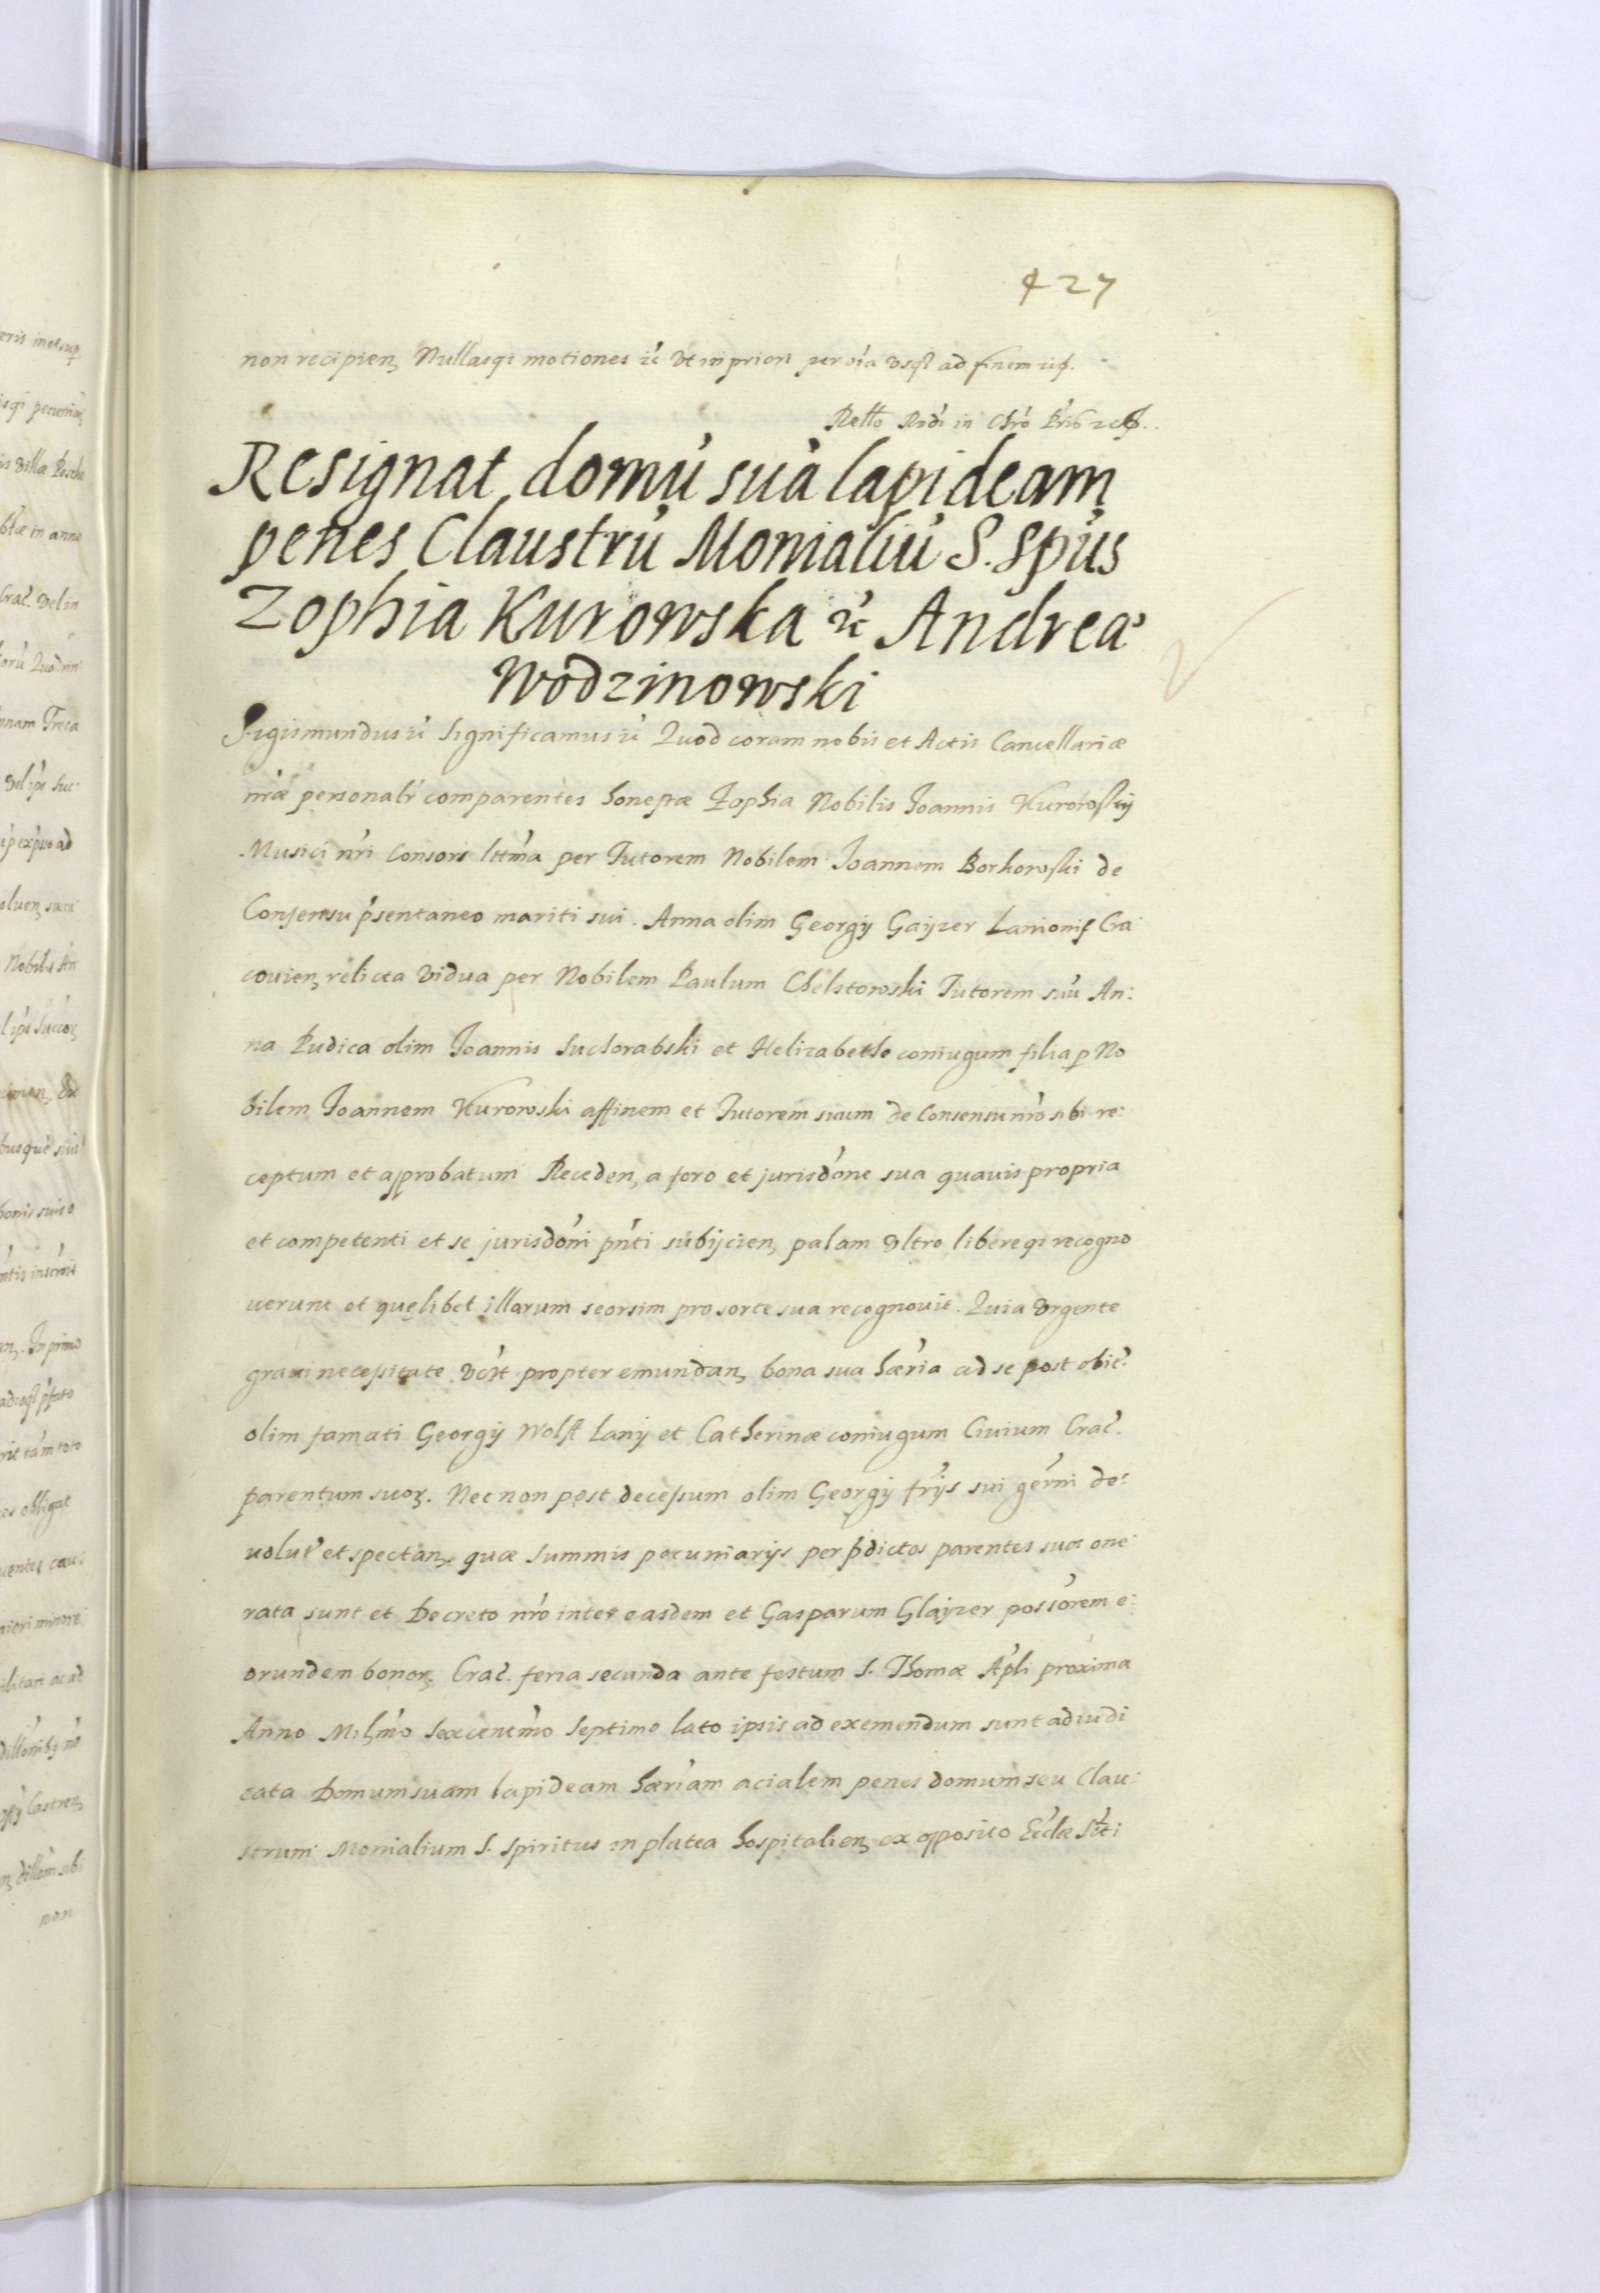 427
non recipien, Nullasqi motiones ec ut in priori per oia usq ad finem
Retto Rndi in Chro Pris
Resignat domu sua lapideam
penes Claustru Monialiu S. Spus
Zophia Kurowska ec Andrea
Wodzinowski
Sigismundus ec Significamus ec Quod coram nobis et Actis Cancellariæ
nræ personalr comparentes honestæ Zophia Nobilis Joannis Kurowskij
Musici nri Consors lttma per Tutorem Nobilem Joannem Borkowski de
Consensu psentaneo mariti sui. Anna olim Georgij Gayzer Lanionis Cra
couien, relicta vidua per Nobilem Paulum Chelstowski Tutorem suu An:
na Pudica olim Joannis Suchorabski et Helizabeth coniugum filia p No
bilem Joannem Kurowski affinem et Tutorem suum de Consensu nro sibi re:
ceptum et approbatum Receden, a foro et jurisdone sua quavis propria
et competenti et se jurisdoni pnti subijcien, palam ultro libereqi recogno
uerunt et quęlibet illarum seorsim pro sorte sua recognouit. Quia urgente
graui necessitate propter emundan, bona sua hæria ad se post obit
olim famati Georgij Wolff Lanij et Catherinæ coniugum Ciuium Crac.
parentum suor. Nec non post decessum olim Georgij fris sui germi de:
uolut et spectan, quæ summis pecuniarijs per pdictos parentes suos one
rata sunt et Decreto nro inter easdem et Gasparum Glayzer possorem e:
orundem bonor, Crac. feria secunda ante festum S. Thomæ Apli proxima
Anno Milmo Sexcentmo Septimo lato ipsis ad exemendum sunt adiudi
cata Domum suam lapideam hæriam acialem penes domum seu Clau:
strum Monialium S. Spiritus in platea hospitalien, ex opposito Ecclæ Scti